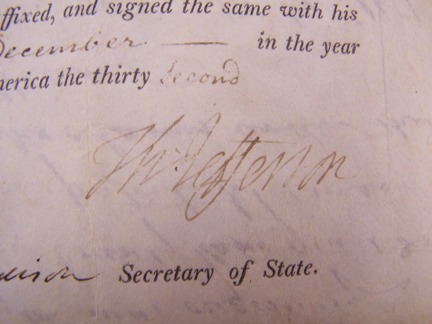 ffixed, and signed the same with his
December — in the year
nerica the thirty second
Th: Jefferson
dison Secretary of State.